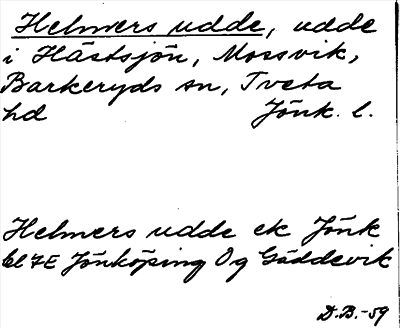 Helmers udde, udde
i Hästsjön, Mossvik,
Barkeryds sn, Tveta
hd Jönk. l.
Helmers udde ek Jönk
bl 7E Jönköping Ög Gäddevik
D.B.-59